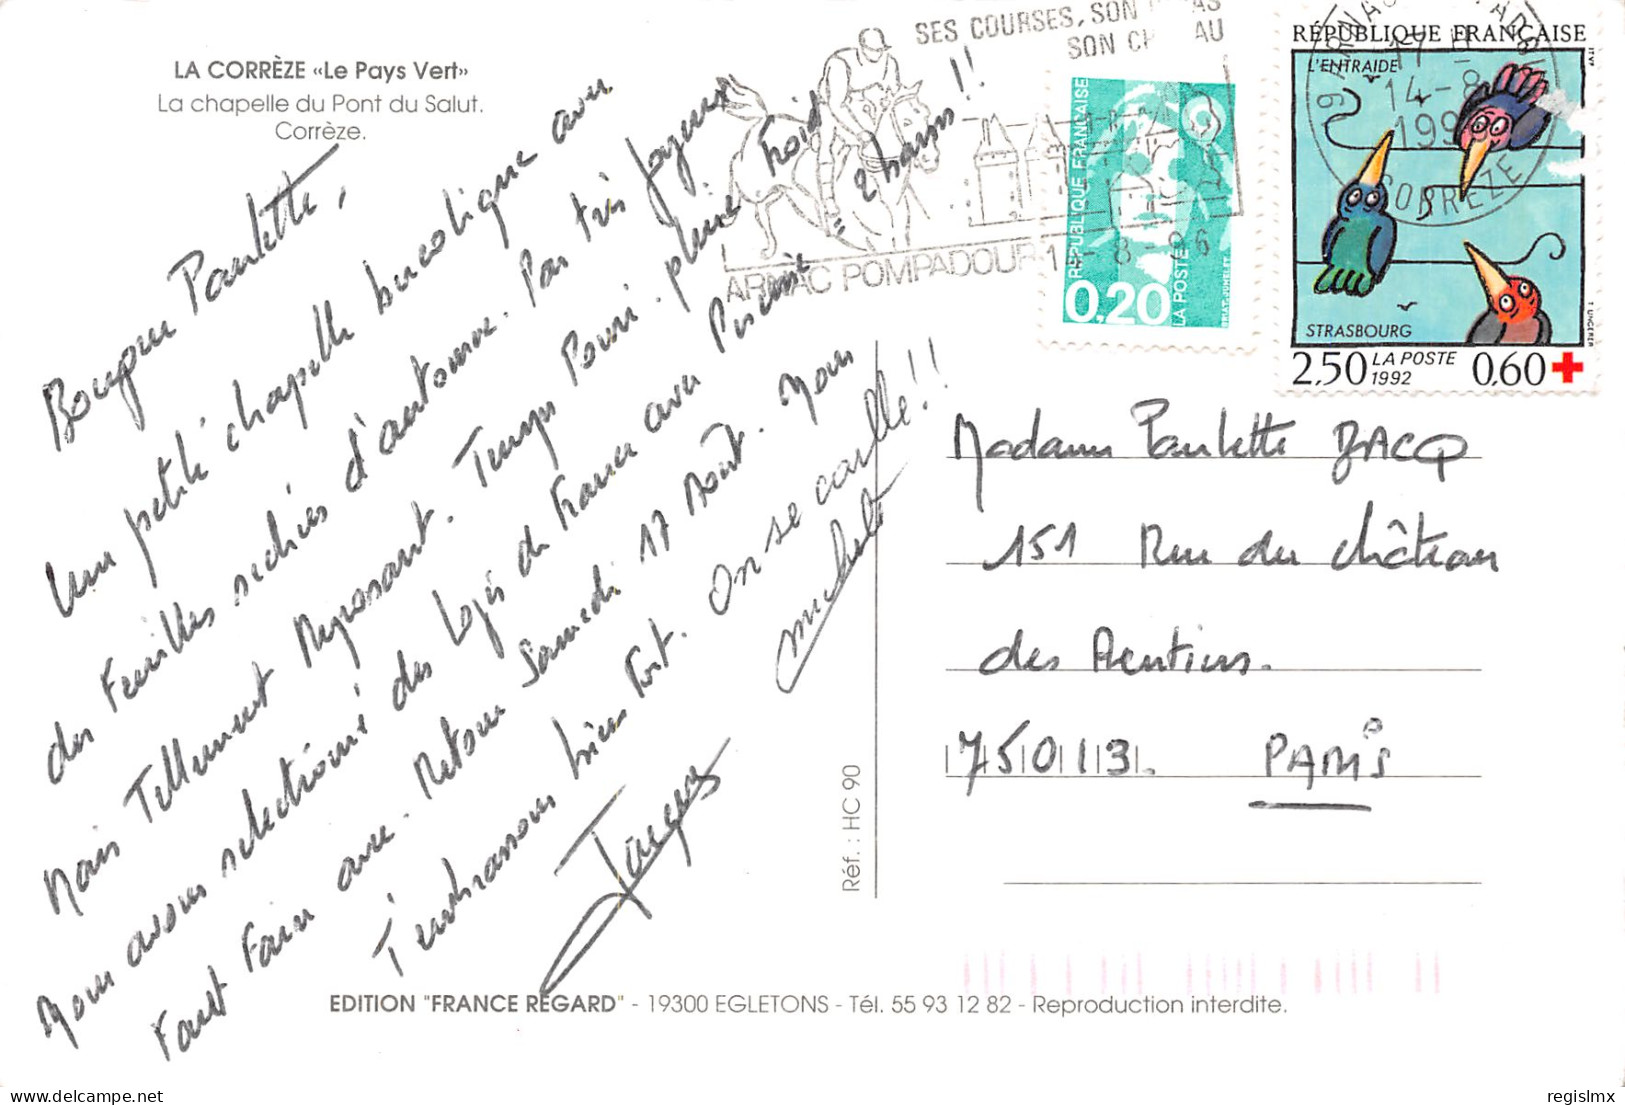 LA CORRÈZE «Le Pays Vert»
La chapelle du Pont du Salut.
Corrèze.
Bonjour Paulette,
Une petite chapelle bucolique avec
des Feuilles séchées d'automne. Pas très joyeux
Mais Tellement Reposant. Temps Pourri. pluie Froid
Nous avons sélectionné des Logis de France avec Piscine = 2 bains!!
Faut Faire avec. Retour Samedi 17 Août. Nous
T'embrassons bien Fort. On se caille!!
Jacques
Michele
SES COURSES, SON
SON CH AU
ARNAC POMPADOUR
RÉPUBLIQUE FRANÇAISE
0,20
LA POSTE
BRIAT-JUMELET
RÉPUBLIQUE FRANÇAISE
L'ENTRAIDE
STRASBOURG
T UNGERER
ITVF
2,50 LA POSTE 1992 0,60
19 ARNAC POMPADOUR
17 H
14-8
199
CORRÈZE
Madame Paulette BACQ
151 Rue du château
des Rentiers.
75013.
PARIS
Réf. : HC 90
EDITION "FRANCE REGARD" - 19300 EGLETONS - Tél. 55 93 12 82 - Reproduction interdite.
regislmx